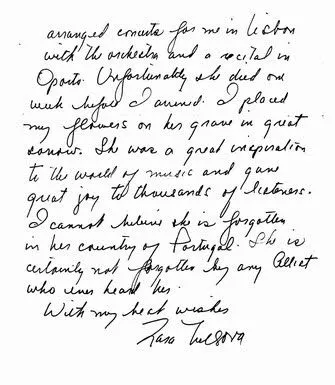 arranged concerts for me in Lisbon
with the orchestra and a recital in
Oporto. Unfortunately she died one
week before I arrived. I placed
my flowers on her grave in great
sorrow. She was a great inspiration
to the world of music and gave
great joy to thousands of listeners.
I cannot believe she is forgotten
in her country of Portugal. She is
certainly not forgotten by any Cellist
who ever heard her.
With my best wishes
Zara Nelsova